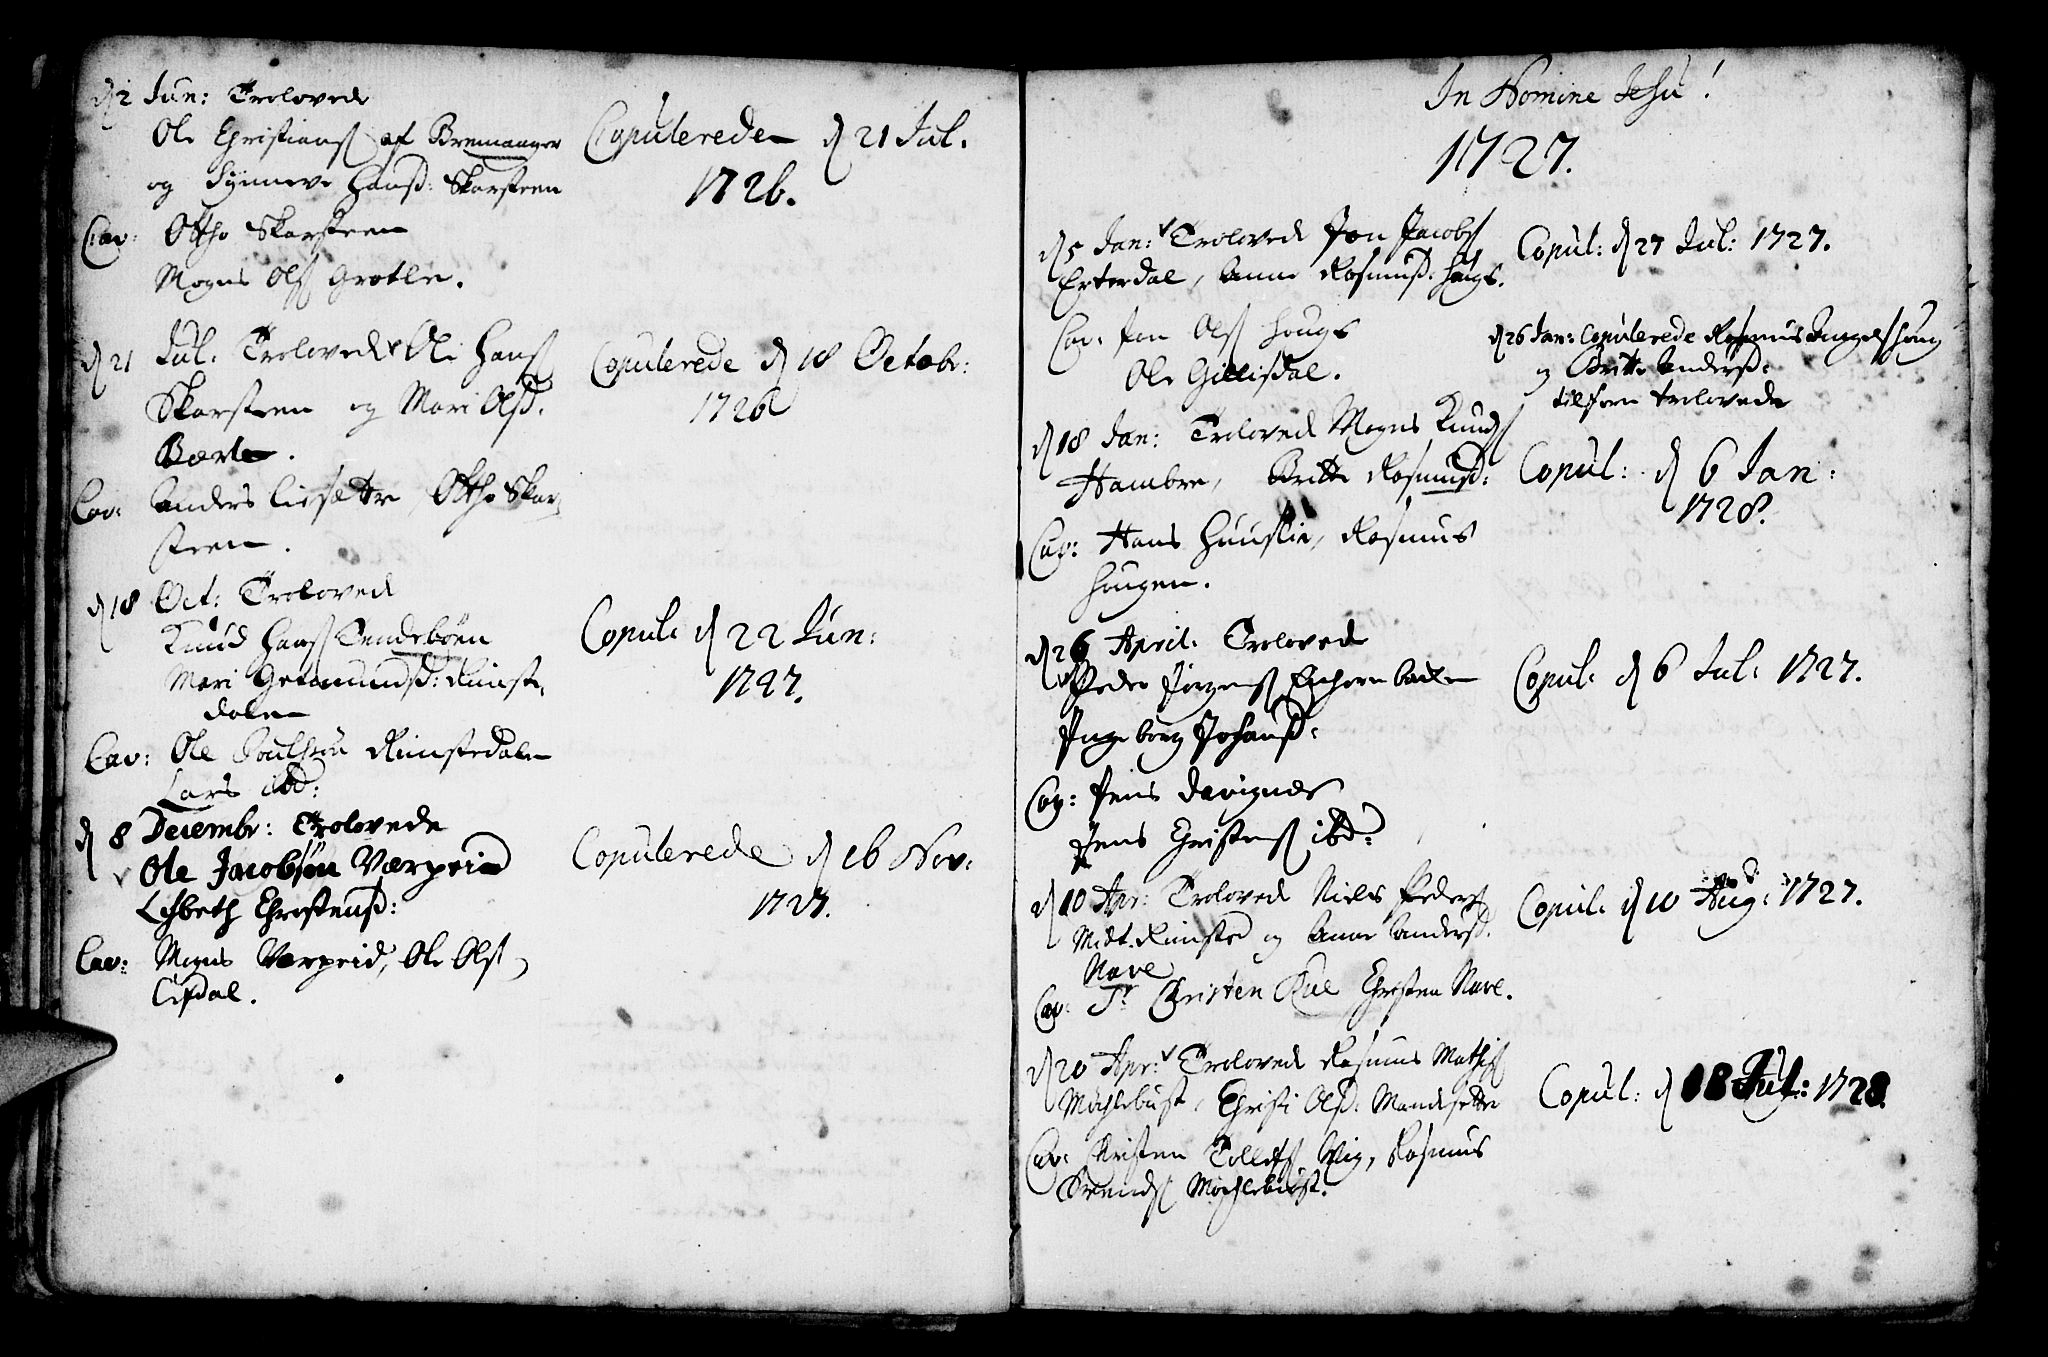 d 2 Jun: Trolovede
Ole Christians af Bremanger
og Synneve Hansd: Skarsteen
Cav: Ottho Skarsteen
Mogns Ols Grotle.
Copulerede d 21 Jul.
1726.
d 21 Jul. Troloved Ole Hans
Skarsteen og Mari Olsd.
Barlen.
Cav: Anders Liesætre, Ottho Skar
steen.
Copulerede d 18 Octobr:
1726
d 18 Oct: Troloved
Knud Hans Sendebøen
Mari Germundsd: Rimste
dalen
Cav: Ole Poulsøn Rimstedalen
Lars ibd:
Copul. d 22 Jun:
1727.
d 8 Decembr: Trolovede
Ole Jacobsøn Værpeid
Lisbeth Christensd:
Cav: Mogns Værpeid, Ole Ols
Lisdal.
Copulerede d 16 Nov:
1727.
In Nomine Jesu!
1727.
d 5 Jan: Troloved Jon Jacobs
Erterdal, Anne Rasmusd: Houge.
Cav: Jon Ols Houge
Ole Gillisdal.
Copul: d 27 Jul: 1727.
d 26 Jan: Copulerede Rasmus Houg
og Britte Andersd:
tilforn trolovede
d 18 Jan: Troloved Mogns Knuds
Hambre, Britte Rasmusd:
Cav: Hans Huuslie, Rasmus
Hougen.
Copul: d 6 Jan:
1728.
d 26 April: Troloved
Peder Jørgens
Ingeborg Johansd:
Cav: Jens Davignes
Jens Christens ibd:
Copul. d 6 Jul: 1727.
d 10 Apr: Troloved Niels Peders
Midt-Rimsted og Anne Andersd.
Nave
Cav: Sr Christen Rue Christen Nave.
Copul. d 10 Aug: 1727.
d 20 Apr: Troloved Rasmus Mathis
Mychlebust, Christi Olsd: Mandesetter
Cav: Christen Tollefs Vig, Rasmus
Svends Mychlebust.
Copul: d 18 Jul: 1728.